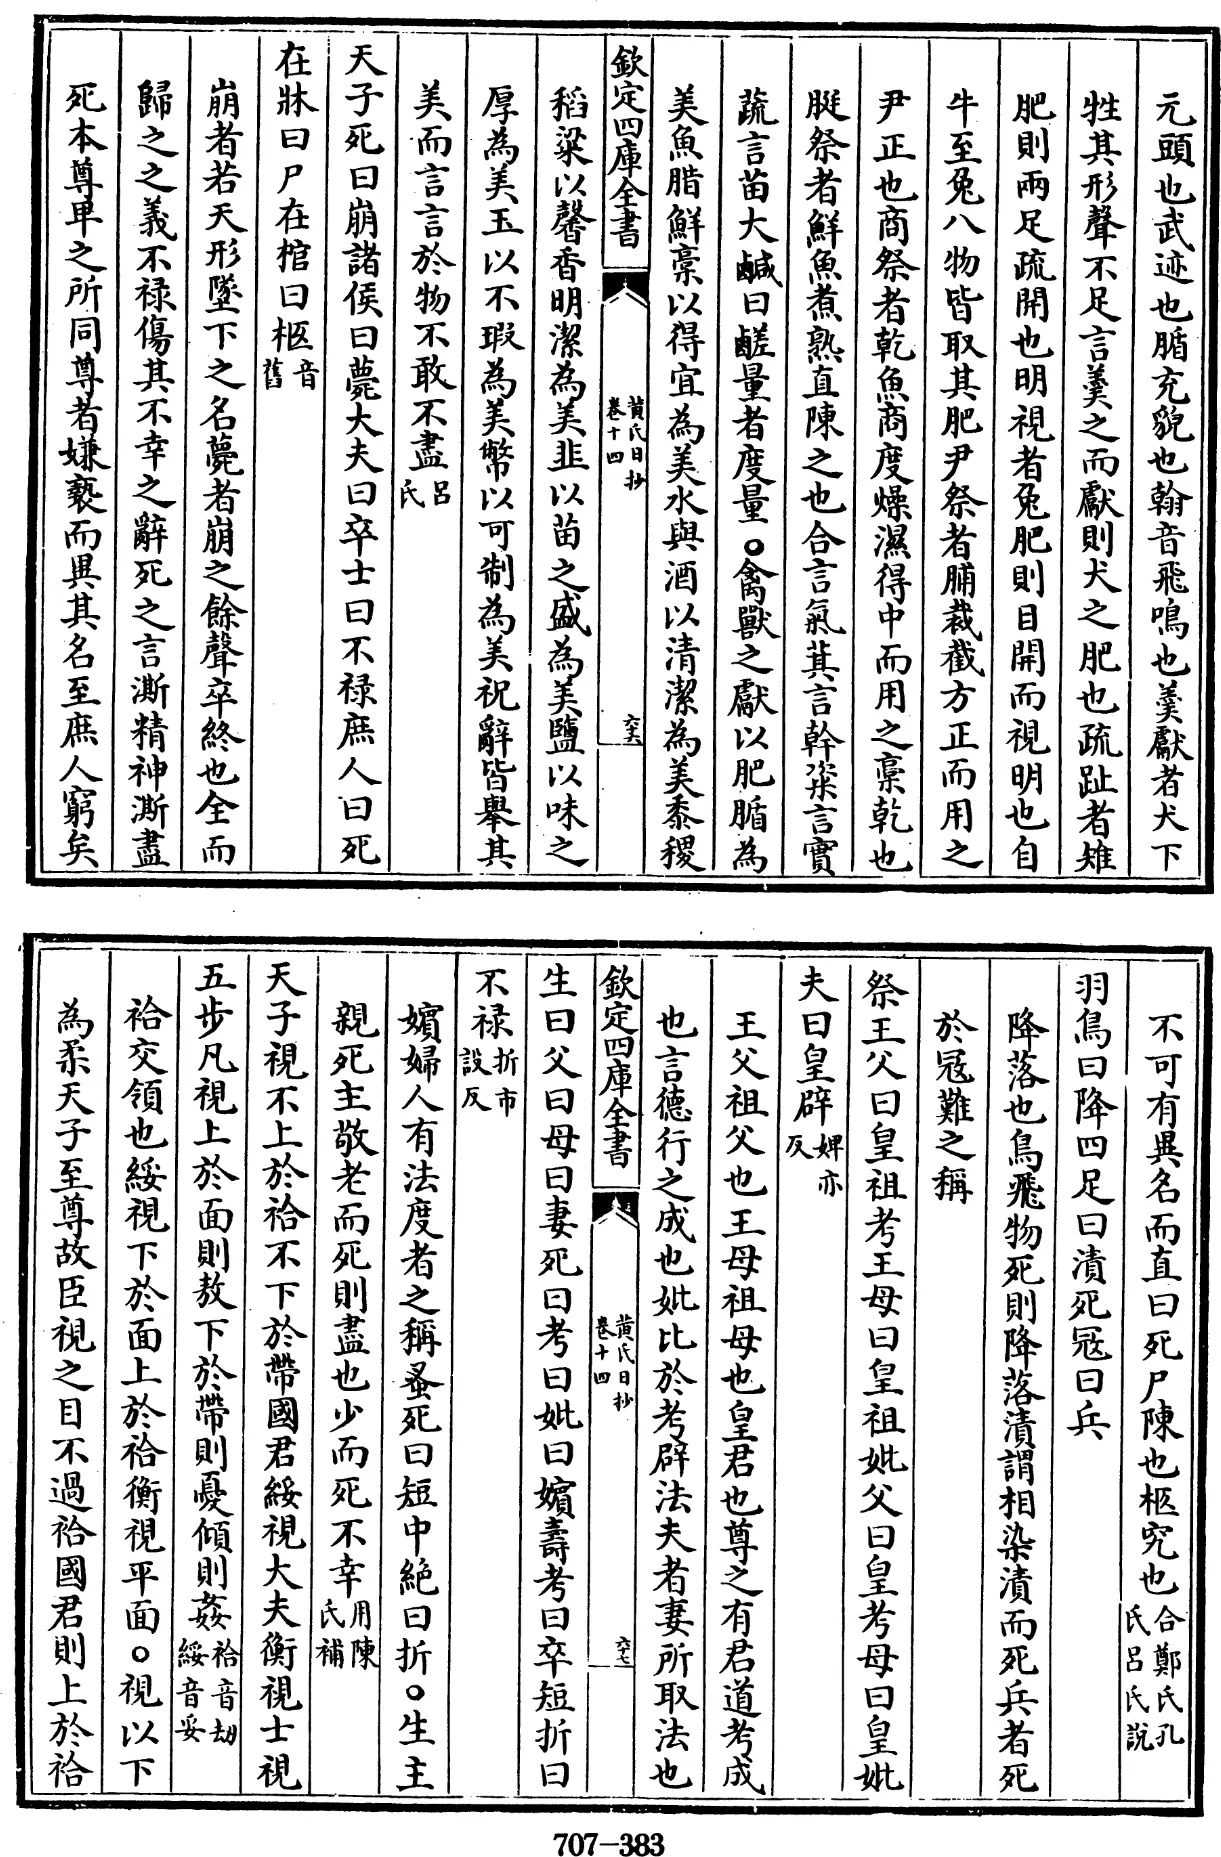 元頭也武迹也腯充貌也翰音飛鳴也羮獻者犬下
牲其形聲不足言羮之而獻則犬之肥也疏趾者雉
肥則兩足疏開也明視者兔肥則目開而視明也自
牛至兔八物皆取其肥尹祭者脯裁截方正而用之
尹正也商祭者乾魚商度燥濕得中而用之槀乾也
脡祭者鮮魚煮熟直陳之也合言氣萁言幹粢言實
蔬言苗大鹹曰鹺量者度量○禽獸之獻以肥腯為
美魚腊鮮槀以得宜為美水與酒以清潔為美黍稷
欽定四庫全書
黃氏日抄
卷十四
六六
稻粱以馨香明潔為美韭以苗之盛為美鹽以味之
厚為美玉以不瑕為美幣以可制為美祝辭皆舉其
美而言言於物不敢不盡呂氏
天子死曰崩諸侯曰薨大夫曰卒士曰不禄庶人曰死
在牀曰尸在棺曰柩音舊
崩者若天形墜下之名薨者崩之餘聲卒終也全而
歸之之義不禄傷其不幸之辭死之言澌精神澌盡
死本尊卑之所同尊者嫌褻而異其名至庶人窮矣
不可有異名而直曰死尸陳也柩究也合鄭氏孔氏呂氏說
羽鳥曰降四足曰漬死寇曰兵
降落也鳥飛物死則降落漬謂相染漬而死兵者死
於寇難之稱
祭王父曰皇祖考王母曰皇祖妣父曰皇考母曰皇妣
夫曰皇辟婢亦反
王父祖父也王母祖母也皇君也尊之有君道考成
也言德行之成也妣比於考辟法夫者妻所取法也
欽定四庫全書
黃氏日抄
卷十四
六七
生曰父曰母曰妻死曰考曰妣曰嬪壽考曰卒短折曰
不禄折市設反
嬪婦人有法度者之稱蚤死曰短中絶曰折○生主
親死主敬老而死則盡也少而死不幸用陳氏補
天子視不上於袷不下於帶國君綏視大夫衡視士視
五步凡視上於面則敖下於帶則憂傾則姦袷音劫綏音妥
袷交領也綏視下於面上於袷衡視平面○視以下
為柔天子至尊故臣視之目不過袷國君則上於袷
707-383